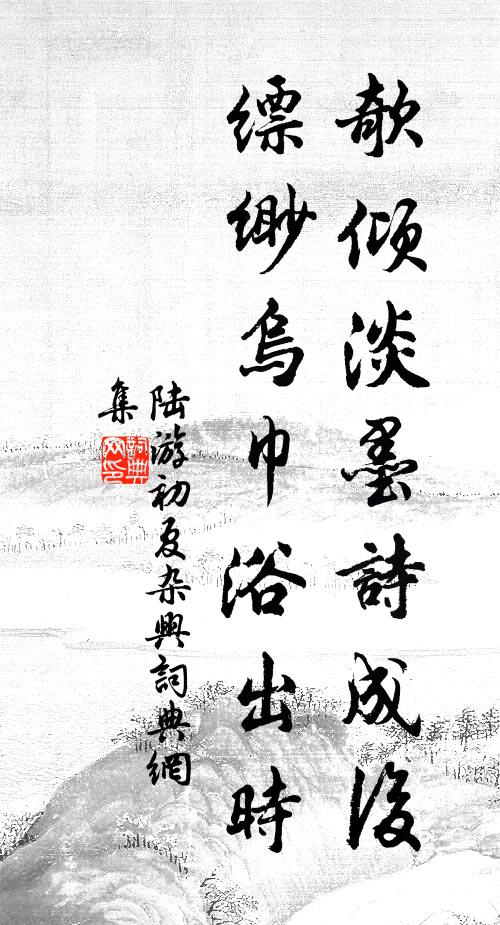 欹傾淡墨詩成後
縹緲烏巾浴出時
陸游初夏杂興詞典網
集
詞典
网印